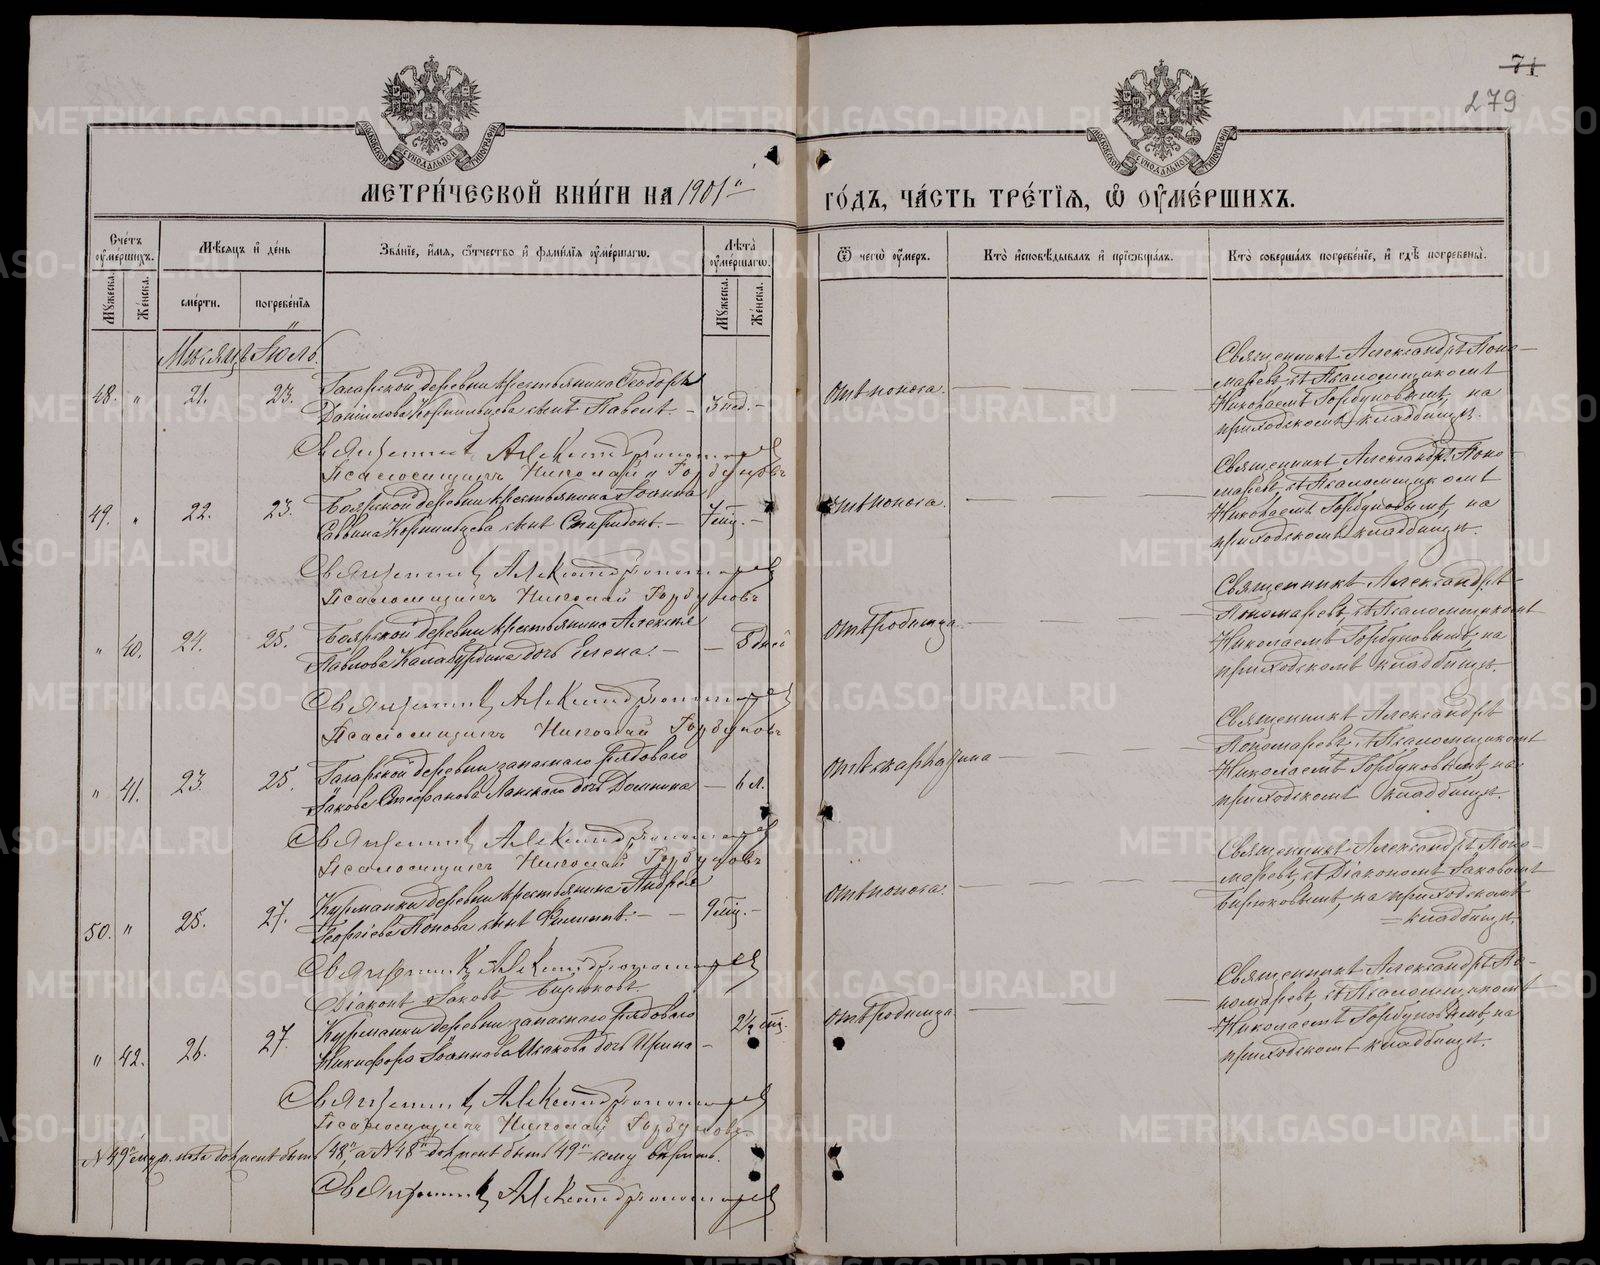 71
279
МЕТРИ́ЧЕСКОЙ КНИ́ГИ НА 1901 ГО́ДЪ, ЧА́СТЬ ТРЕ́ТЇЯ, Ѡ ОУ҆МЕ́РШИХЪ.
Сче́тъ оу҆ме́ршихъ.
Мѣ́сяцъ и҆ де́нь
Зва́нїе, и҆́мя, ѻ҆́тчество и҆ фами́лїя оу҆ме́ршагѡ.
Лѣ́та оу҆ме́ршагѡ.
Ѿ чегѡ̀ оу҆́меръ.
Кто̀ и҆сповѣ́дывалъ и҆ прїѡбща́лъ.
Кто̀ соверша́лъ погребе́нїе, и҆ гдѣ̀ погребены̀.
Му́жеска.
Же́нска.
сме́рти.
погребе́нїя
Му́жеска.
Же́нска.
Мѣсяцъ Іюль.
48. " 21. 23. Гагарской деревни крестьянина Ѳеодора
Даніилова Кормильцева сынъ Павелъ. 3 нед. отъ поноса.
Священникъ Александръ Поно-
маревъ съ Псаломщикомъ
Николаемъ Горбуновымъ, на
приходскомъ кладбищѣ.
Священникъ Александръ Пономаревъ
Псаломщикъ Николай Горбуновъ
49. " 22. 23. Боярской деревни крестьянина Іоанна
Саввина Кормильцева сынъ Спиридонъ. 7 мѣс. отъ поноса.
Священникъ Александръ Поно-
маревъ съ Псаломщикомъ
Николаемъ Горбуновымъ, на
приходскомъ кладбищѣ.
Священникъ Александръ Пономаревъ
Псаломщикъ Николай Горбуновъ
" 40. 24. 25. Боярской деревни крестьянина Алексѣя
Павлова Калабурдина дочь Елена. 8 дней отъ родимца.
Священникъ Александръ
Пономаревъ, съ Псаломщикомъ
Николаемъ Горбуновымъ, на
приходскомъ кладбищѣ.
Священникъ Александръ Пономаревъ
Псаломщикъ Николай Горбуновъ
" 41. 23. 25. Гагарской деревни запаснаго рядоваго
Іакова Стефанова Ланскаго дочь Домника 6 л. отъ скарлатина
Священникъ Александръ
Пономаревъ, съ Псаломщикомъ
Николаемъ Горбуновымъ, на
приходскомъ кладбищѣ.
Священникъ Александръ Пономаревъ
Псаломщикъ Николай Горбуновъ
50. " 25. 27. Курманки деревни крестьянина Андрея
Георгіева Попова сынъ Филиппъ. 9 мѣс. отъ поноса.
Священникъ Александръ Поно-
маревъ, съ Діакономъ Іаковомъ
Бирюковымъ, на приходскомъ
кладбищѣ.
Священникъ Александръ Пономаревъ
Діаконъ Іаковъ Бирюковъ.
" 42. 26. 27. Курманки деревни запаснаго рядоваго
Никифора Іоаннова Исакова дочь Ирина 2½ мѣс. отъ родимца
Священникъ Александръ По-
номаревъ, съ Псаломщикомъ
Николаемъ Горбуновымъ, на
приходскомъ кладбищѣ.
Священникъ Александръ Пономаревъ
Псаломщикъ Николай Горбуновъ.
№ 49й муж. пола долженъ быть 48й, а № 48й долженъ быть 49й чему вѣрить.
Священникъ Александръ Пономаревъ
METRIKI.GASO-URAL.RU